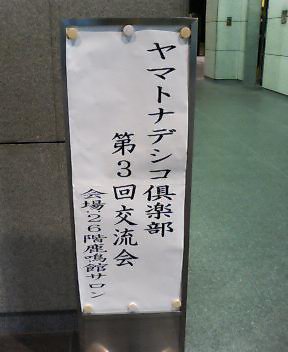 ヤマトナデシコ倶楽部
第3回交流会
会場:26階鹿鳴館サロン